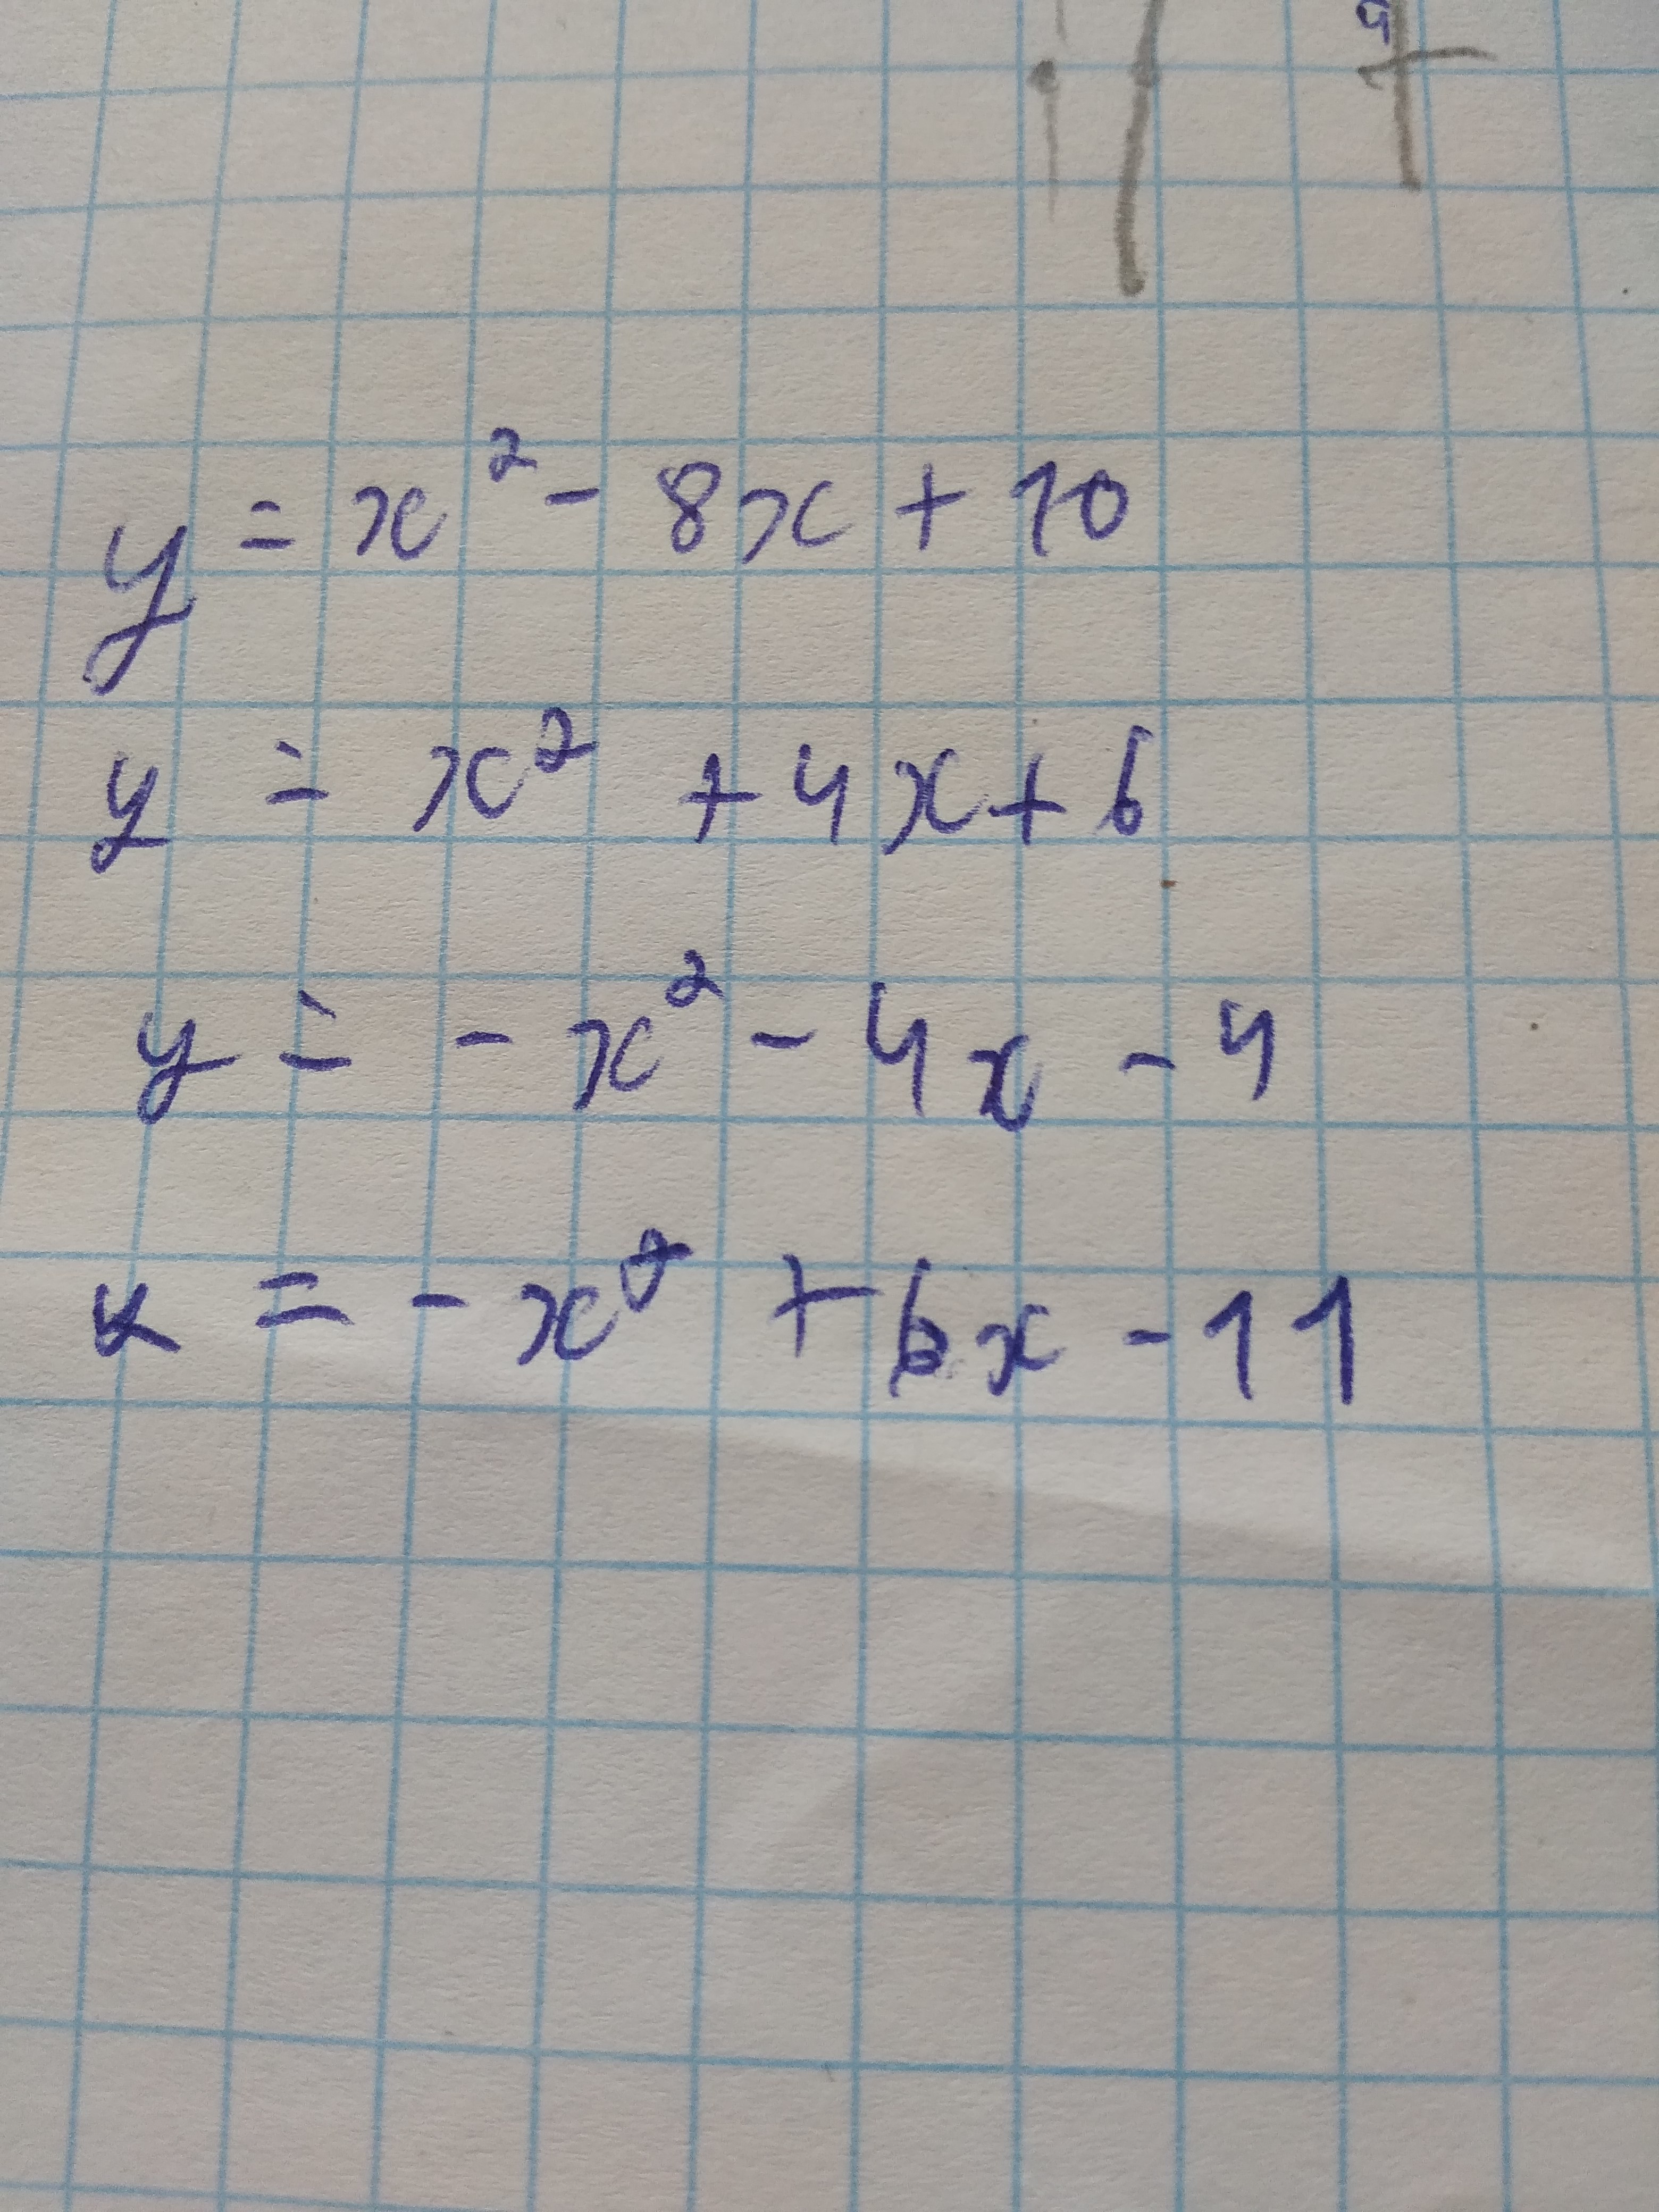 y = x² - 8x + 10
y = x² + 4x + 6
y = - x² - 4x - 4
x = - x² + 6x - 11